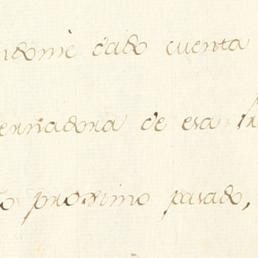 ndome dado cuenta
ernadora de esa
to proximo pasado,